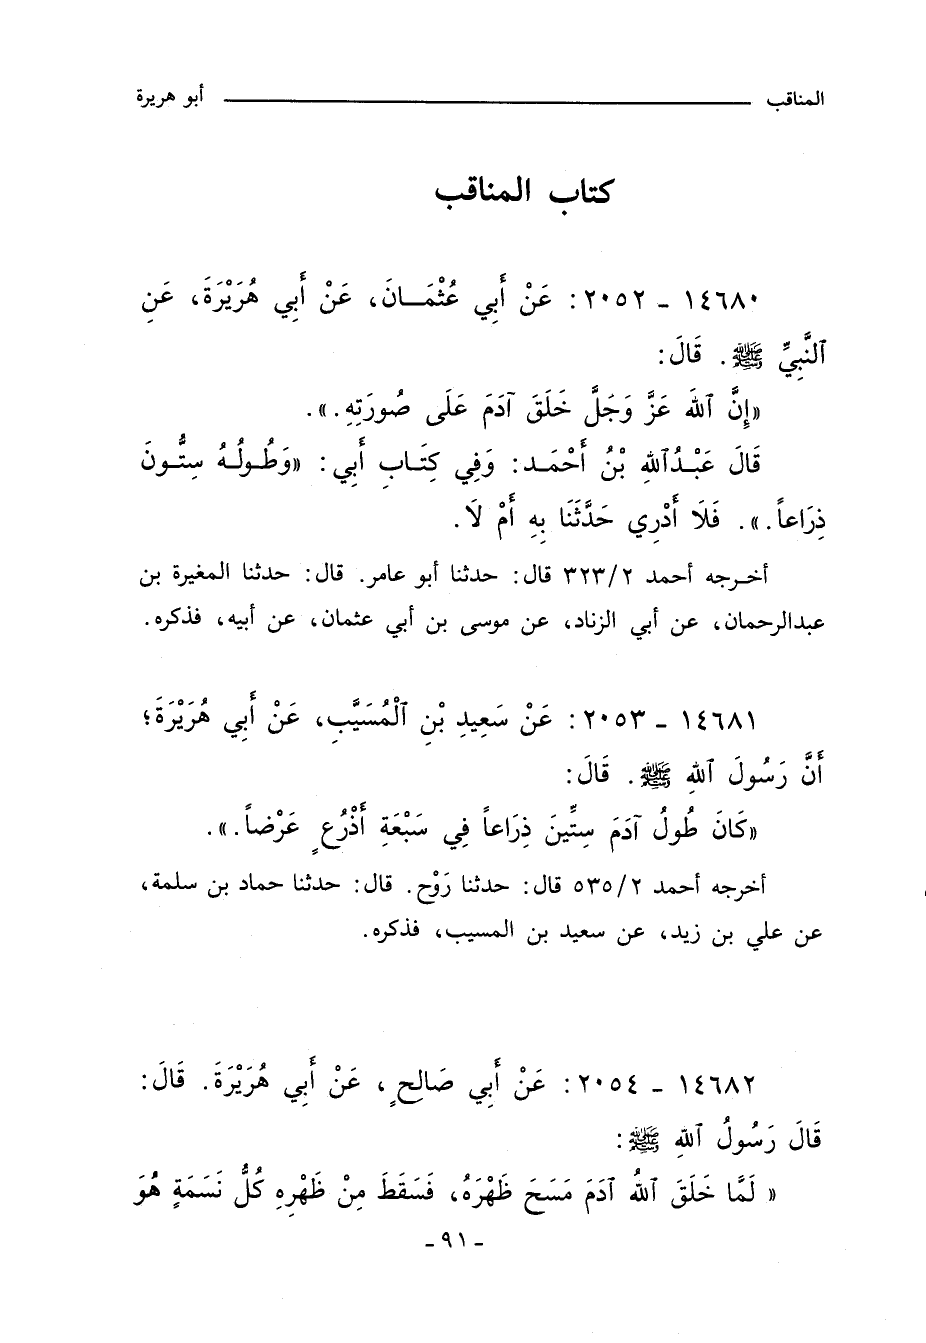 المناقب أبو هريرة
كتاب المناقب
١٤٦٨٠ - ٢٠٥٢ : عَنْ أَبِي عُثْمَـانَ، عَنْ أَبِي هُرَيْرَةَ، عَنِ
ٱلنَّبِيِّ ﷺ . قَالَ:
«إِنَّ ٱللهَ عَزَّ وَجَلَّ خَلَقَ آدَمَ عَلَى صُورَتِهِ.».
قَالَ عَبْـدُٱللهِ بْنُ أَحْمَـد: وَفِي كِتَـابِ أَبِي: «وَطُـولُـهُ سِتُّـونَ
ذِرَاعاً.». فَلَا أَدْرِي حَدَّثَنَا بِهِ أَمْ لَا.
أخـرجه أحمد ٣٢٣/٢ قال: حدثنا أبو عامر. قال: حدثنا المغيرة بن
عبدالرحمان، عن أبي الزناد، عن موسى بن أبي عثمان، عن أبيه، فذكره.
١٤٦٨١ - ٢٠٥٣ : عَنْ سَعِيدِ بْنِ ٱلْمُسَيَّبِ، عَنْ أَبِي هُرَيْرَةَ؛
أَنَّ رَسُولَ ٱللهِ ﷺ . قَالَ:
«كَانَ طُولُ آدَمَ سِتِّينَ ذِرَاعاً فِي سَبْعَةِ أَذْرُعٍ عَرْضاً.».
أخرجه أحمد ٥٣٥/٢ قال: حدثنا رَوْح. قال: حدثنا حماد بن سلمة،
عن علي بن زيد، عن سعيد بن المسيب، فذكره.
١٤٦٨٢ - ٢٠٥٤ : عَنْ أَبِي صَالِحٍ، عَنْ أَبِي هُرَيْرَةَ. قَالَ:
قَالَ رَسُولُ ٱللهِ ﷺ:
« لَمَّا خَلَقَ ٱللهُ آدَمَ مَسَحَ ظَهْرَهُ، فَسَقَطَ مِنْ ظَهْرِهِ كُلُّ نَسَمَةٍ هُوَ
- ٩١ -